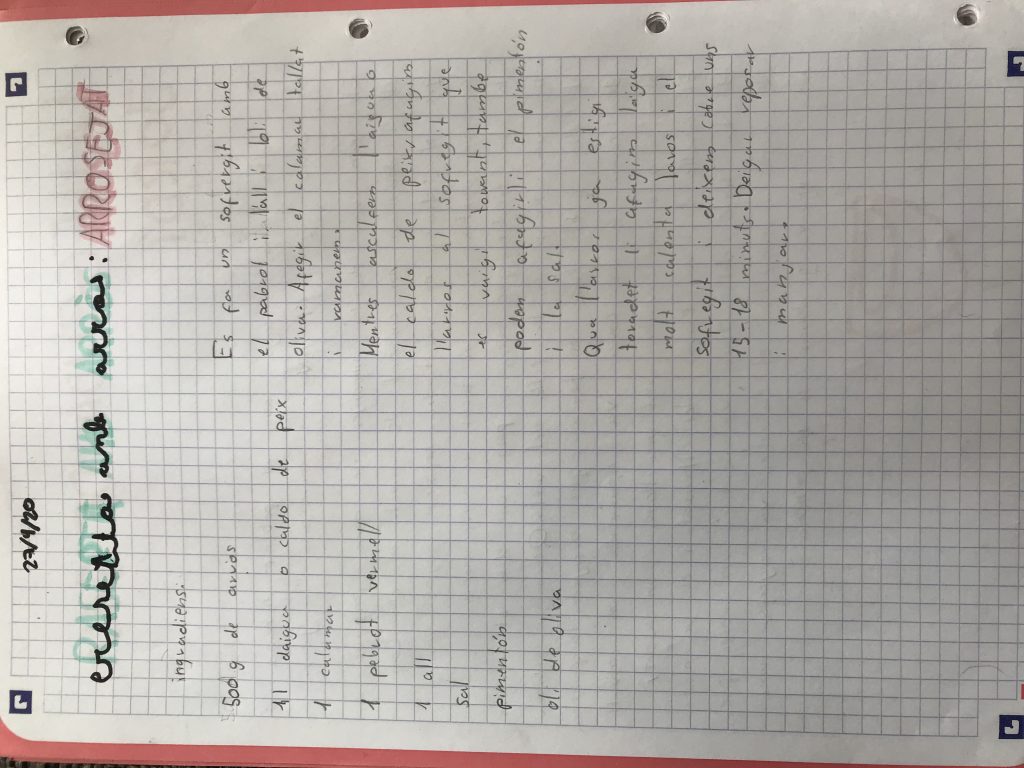 27/4/20
rerepta amb arròs: ARROSEJAT
ingradiens:
500 g de arròs
1 l daigua o caldo de peix
1 calamar
1 pebrot vermell
1 all
sal
pimentón
oli de oliva
Es fa un sofregit amb
el pabrol i lall i loli de
oliva. Afegir el calamar tallat
i ramanem.
Mentres ascalfem l'aigua o
el caldo de peix, afagim
l'arros al sofregit que
es vaigi torrant, tambe
podem afagirli el pimentón
i la sal.
Qua l'arros ja estigi
toradet li afagim laigua
molt calenta laros i el
sofregit i deixem cobre uns
15-18 minuts. Deigal reposar
i manjar.